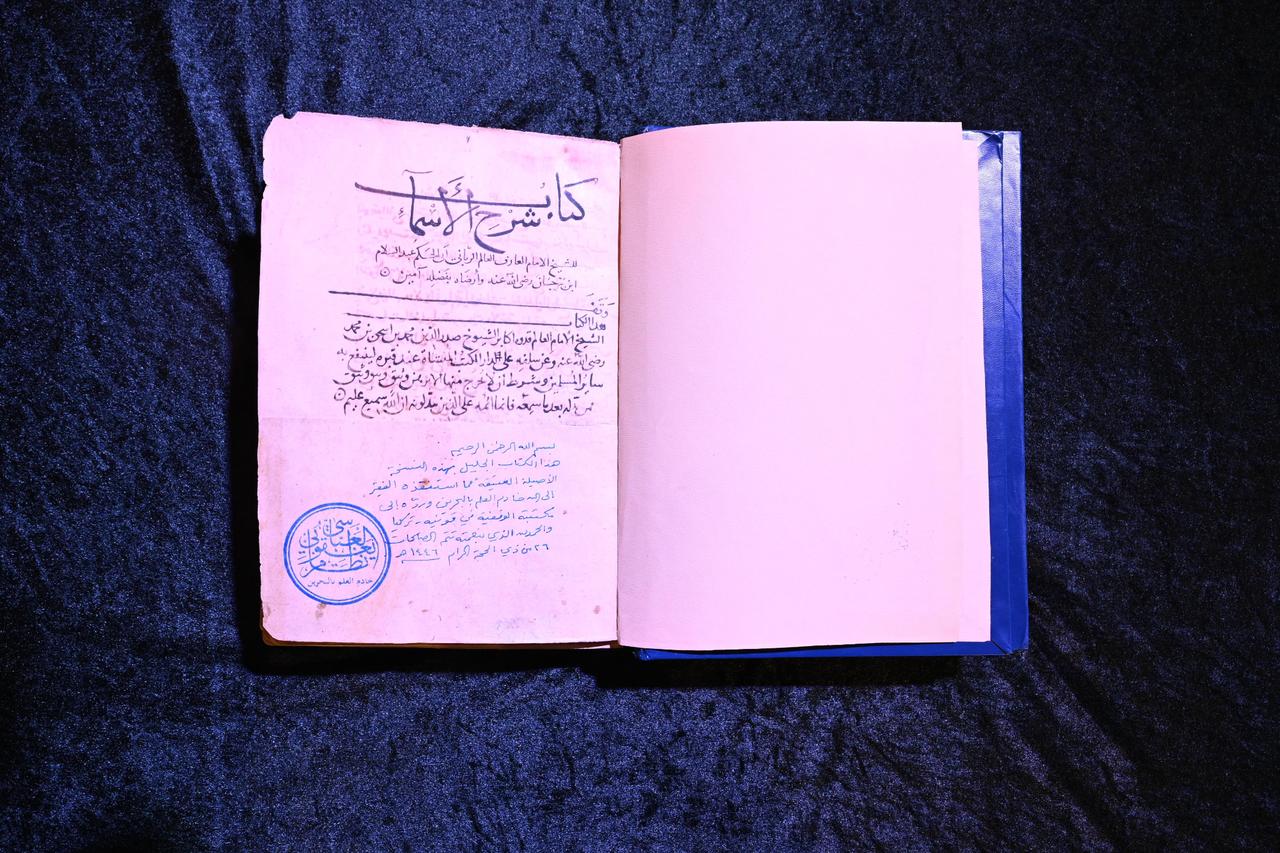 كتاب
شرح الأسماء
للشيخ الامام العارف العالم الرباني أبي الحكم عبد السلام
ابن برجان رضي الله عنه وأرضاه بفضله آمين
وقف
هذا الكتاب
الشيخ الامام العالم قدوة اكابر الشيوخ صدر الدين محمد بن اسحق بن محمد
رضي الله عنه وعن سلفه على دار الكتب المنشاة عند قبره لينتفع به
سائر المسلمين وشرط أن لا يخرج منها الا برهن وثيق
فمن بدله بعد ما سمعه فانما اثمه على الذين يبدلونه ان الله سميع عليم
بسم الله الرحمن الرحيم
هذا الكتاب الجليل بهذه النسخة
الأصيلة العتيقة مما استنقذه الفقير
إلى الله خادم العلم بالبحرين وردّه إلى
مكتبته الوقفية من قونية - تركيا
والحمد لله الذي بنعمته تتم الصالحات
٢٦ من ذي الحجة الحرام ١٤٤٦ هـ
نظام يعقوبي العباسي
خادم العلم بالبحرين